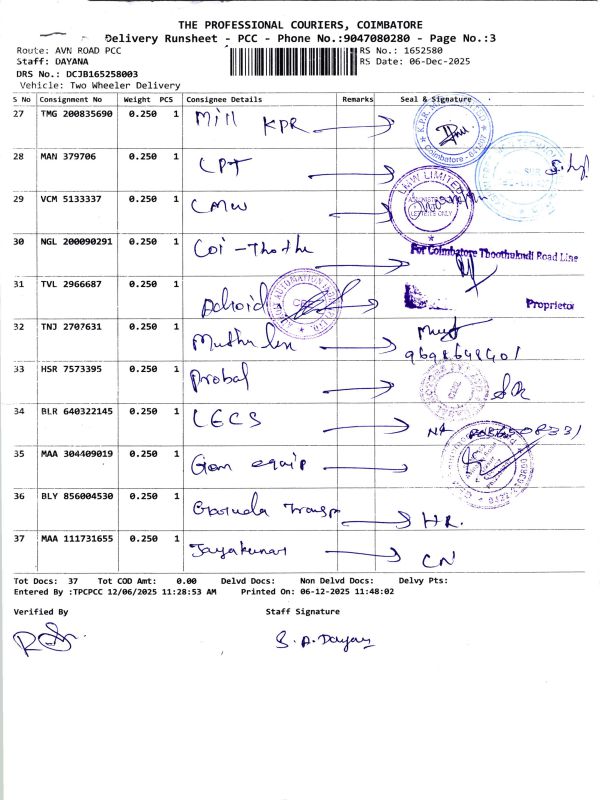 THE PROFESSIONAL COURIERS, COIMBATORE
Delivery Runsheet - PCC - Phone No.:9047080280 - Page No.:3
Route: AVN ROAD PCC RS No.: 1652580
Staff: DAYANA RS Date: 06-Dec-2025
DRS No.: DCJB165258003
Vehicle: Two Wheeler Delivery
S No Consignment No Weight PCS Consignee Details Remarks Seal & Signature
27 TMG 200835690 0.250 1 Mill KPR
Coimbatore - 641407
28 MAN 379706 0.250 1 CPT
29 VCM 5133337 0.250 1 CMW
LMW LIMITED
LETTERS ONLY
30 NGL 200090291 0.250 1 Coi - Thothu
For Coimbatore Thoothukudi Road Line
31 TVL 2966687 0.250 1
Proprietor
32 TNJ 2707631 0.250 1
9698648401
33 HSR 7573395 0.250 1 Probal
34 BLR 640322145 0.250 1 LECS
35 MAA 304409019 0.250 1 Gom equip
36 BLY 856004530 0.250 1 Garuda Transp HR.
37 MAA 111731655 0.250 1 Jayakumar CN
Tot Docs: 37 Tot COD Amt: 0.00 Delvd Docs: Non Delvd Docs: Delvy Pts:
Entered By :TPCPCC 12/06/2025 11:28:53 AM Printed On: 06-12-2025 11:48:02
Verified By Staff Signature
S. A. Dayan